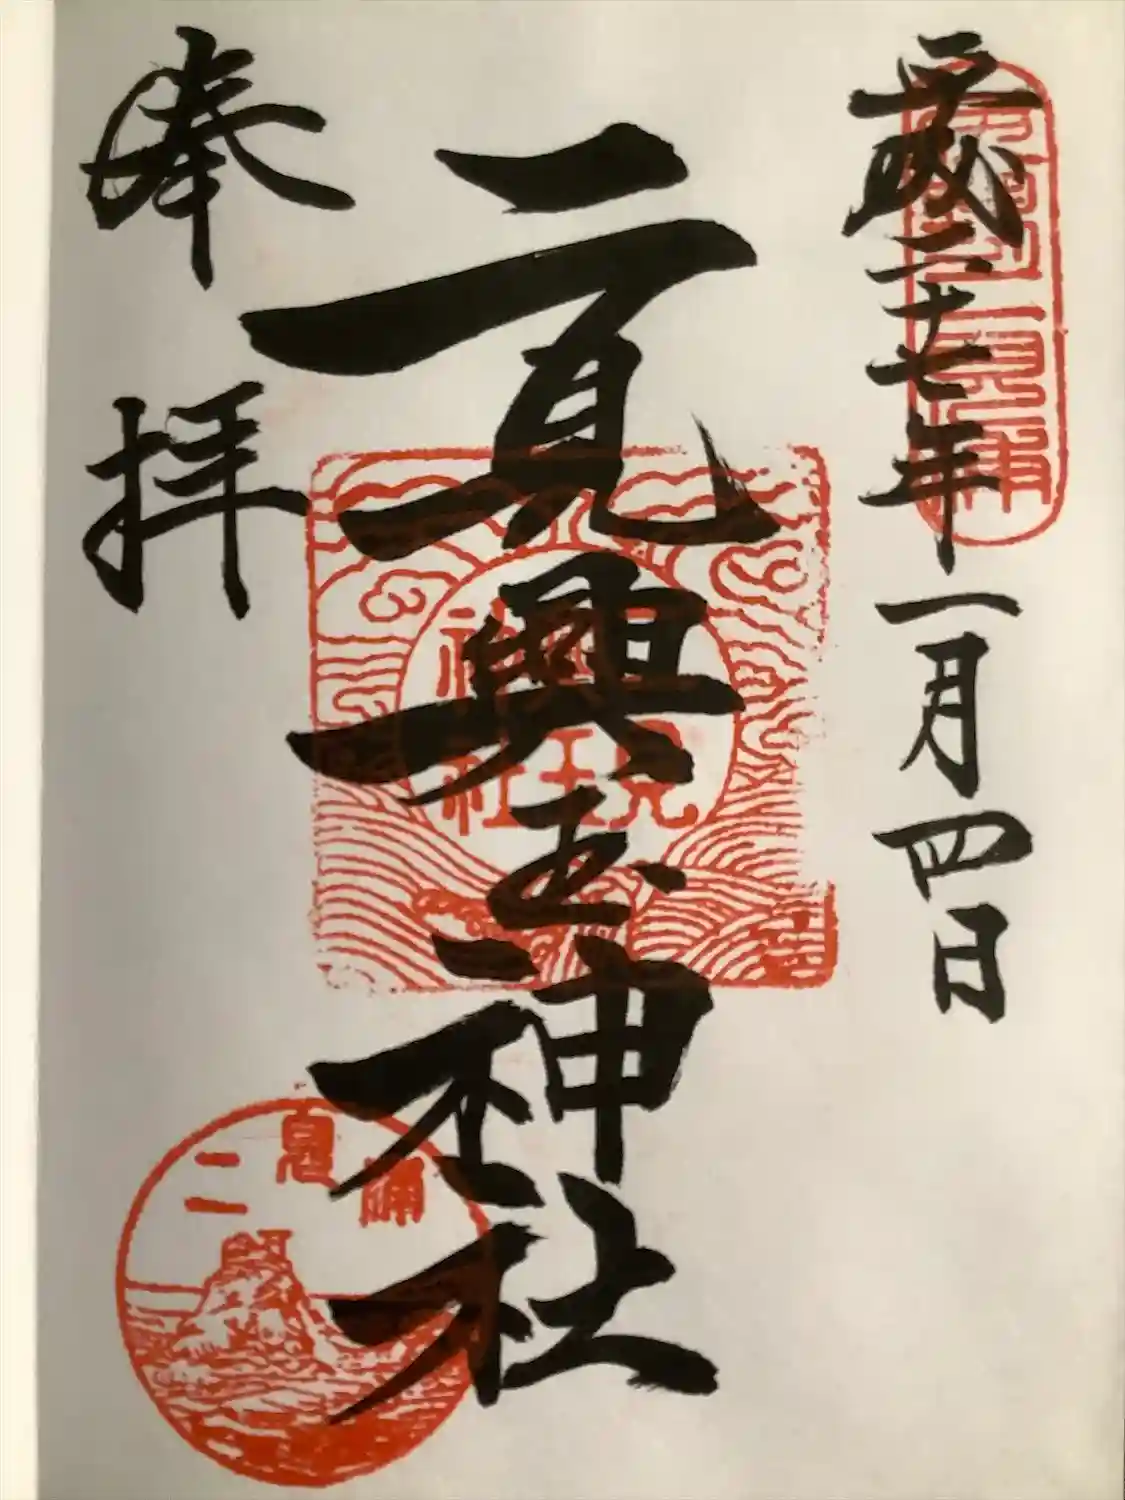 平成二十七年一月四日
二見興玉神社
奉拝
二見
興玉
神社
二見浦